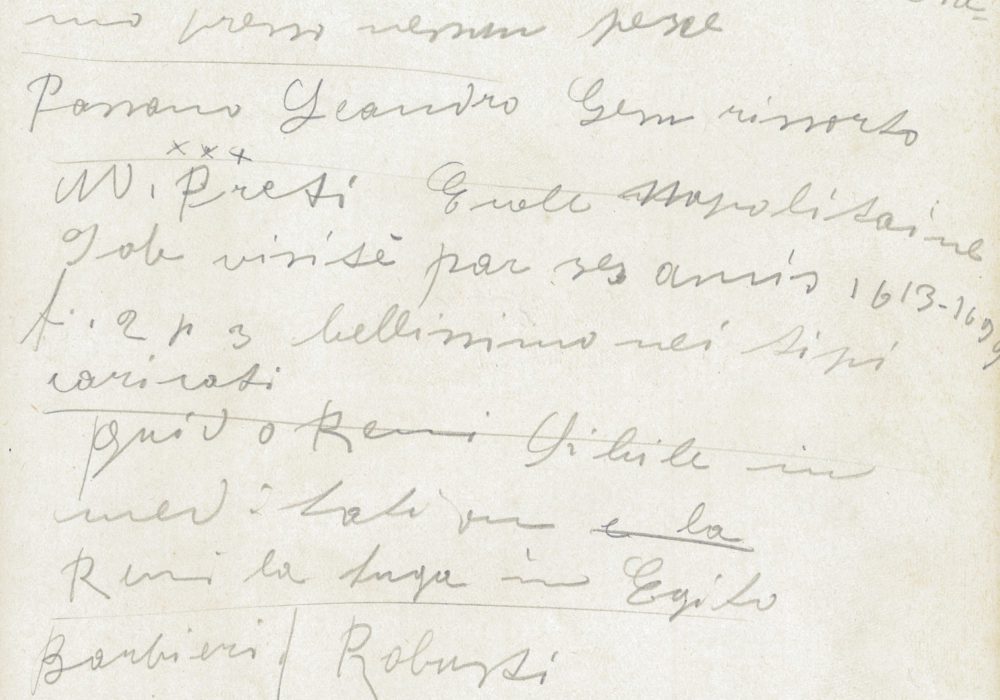 mo presso nessun pesce
Passano Leandro Gesu rissorto
x x x
M. Preti Ecole Napolitaine
Job visité par ses amis 1613-1699
f. 2 p 3 bellissimo nei tipi
caricati
guido Reni Sibile in
meditation e la
Reni la fuga in Egito
Barbieri / Robusti